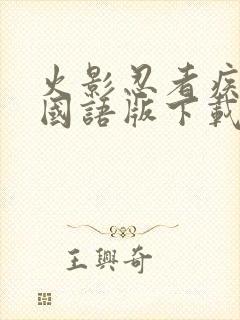 火影忍者疾
國語版下載
王興奇